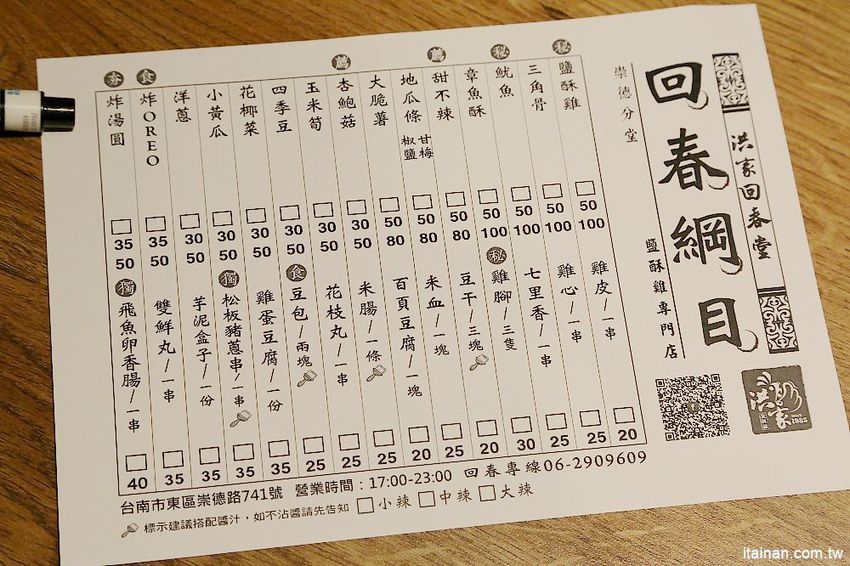 洪家回春堂
回春綱目
鹽酥雞專門店
崇德分堂
洪家
SINCE 1985
秘
鹽酥雞
50
100
三角骨
50
100
秘
魷魚
50
100
章魚酥
50
100
薦
甜不辣
50
80
地瓜條 甘梅 椒鹽
50
80
大脆薯
50
80
薦
杏鮑菇
50
80
玉米筍
30
50
四季豆
30
50
花椰菜
30
50
小黃瓜
30
50
洋蔥
30
50
食
炸OREO
35
50
夯
炸湯圓
35
50
雞皮/一串
20
雞心/一串
25
七里香/一串
25
秘
雞腳/三隻
30
豆干/三塊
20
米血/一塊
20
百頁豆腐/一塊
25
米腸/一條
25
花枝丸/一串
25
食
豆包/兩塊
25
雞蛋豆腐/一份
35
獨
松板豬蔥串/一串
35
芋泥盒子/一份
35
雙鮮丸/一串
35
獨
飛魚卵香腸/一串
40
台南市東區崇德路741號 營業時間：17:00-23:00 回春專線06-2909609
標示建議搭配醬汁，如不沾醬請先告知 小辣 中辣 大辣
itainan.com.tw